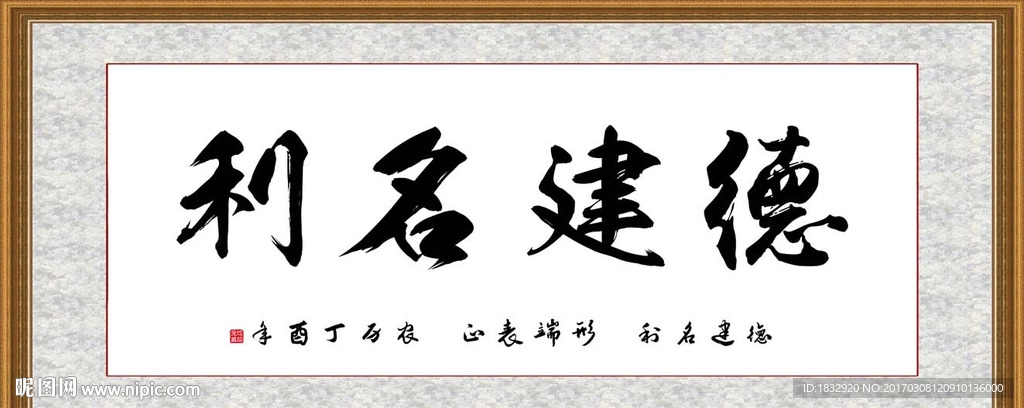 德建名利
德建名利 形端表正 农历丁酉年
昵图网 www.nipic.com
ID:1832920 NO:20170308120910136000